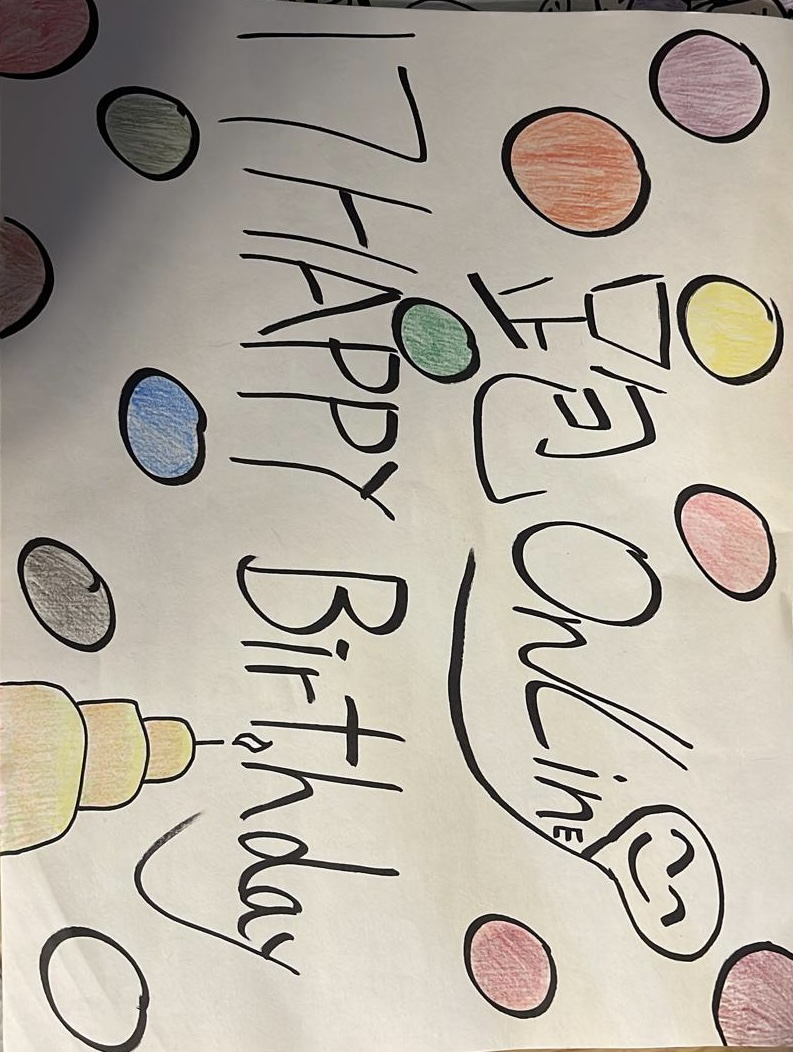 跑 OnLinE
17HAPPY Birthday